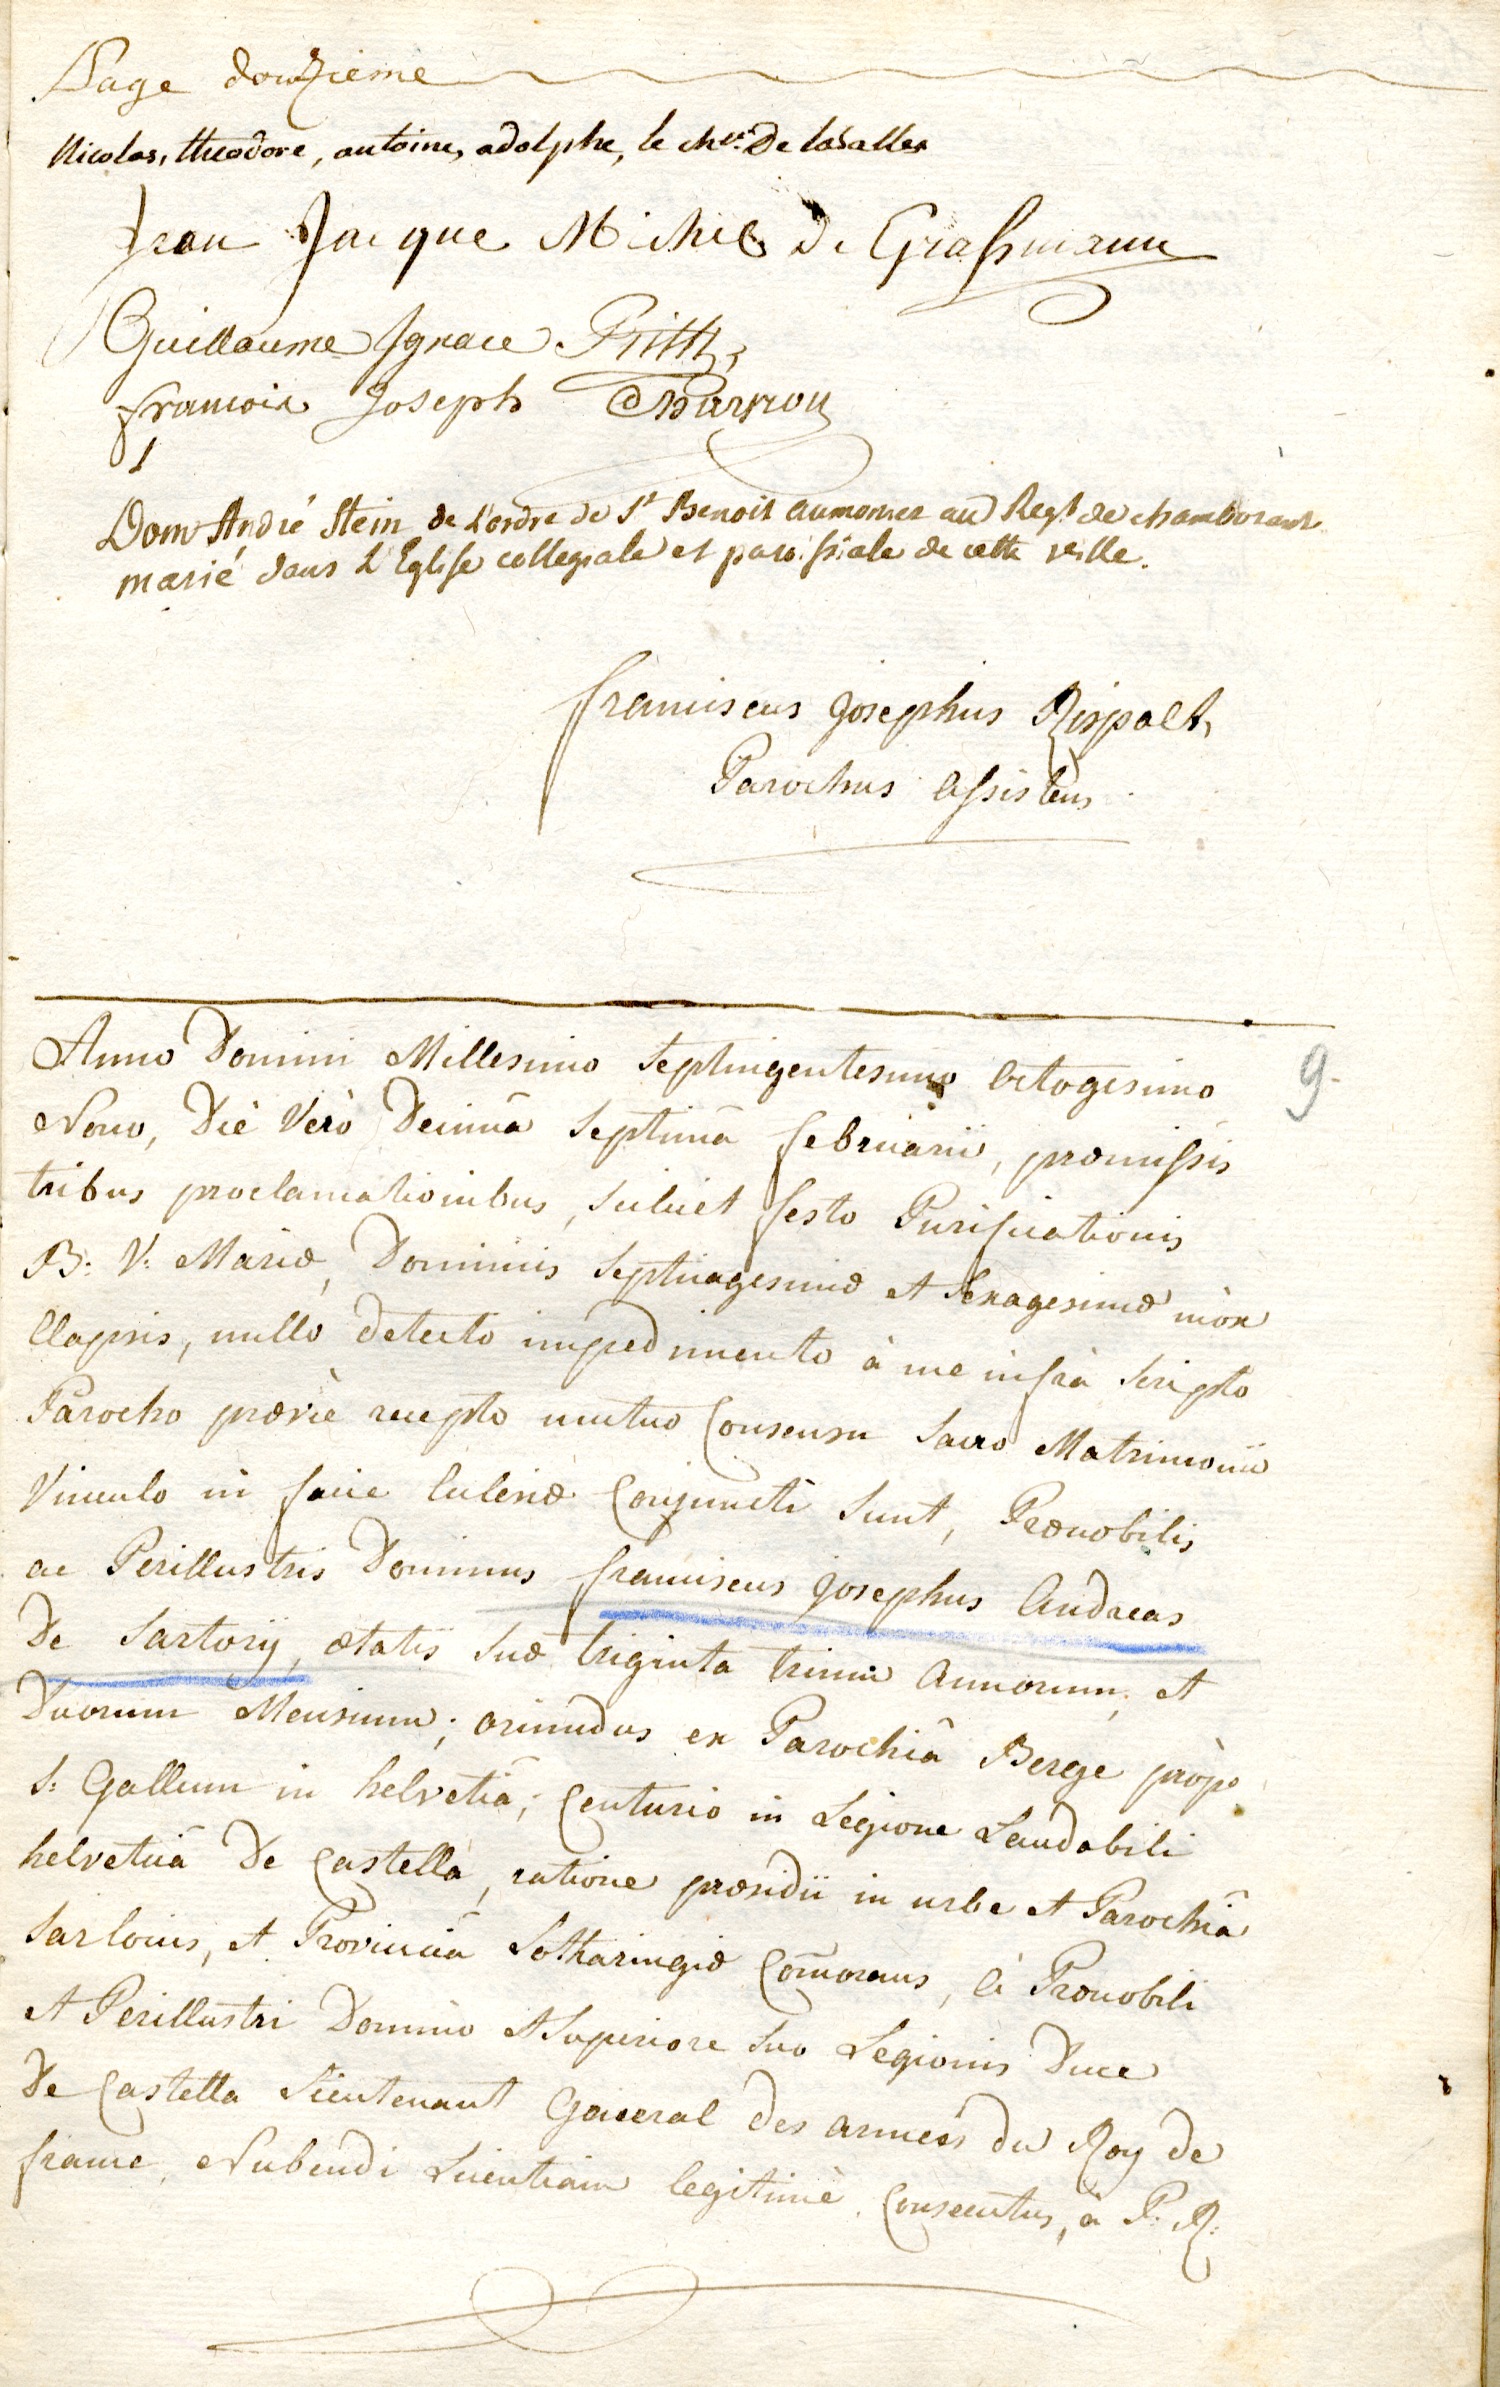 Page douzieme
Nicolas, theodore, antoine, adolphe, le chr. De lasalles
Jean Jacque Michel de Graßmann
Guillaume Ignace
francois Joseph Charron
Dom André Stein de l'ordre de St Benoit aumonier au Regt de chamborant
marié dans L'Eglise collegiale et paroissiale de cette ville.
franciscus Josephus Rispalt,
Parochus assistens
Anno Domini Millesimo Septingentesimo octogesimo 9.
Nono, Diè Verò Decimâ Septimâ februarii, præmissis
tribus proclamationibus, scilicet festo Purificationis
B: V: Mariæ, Dominicis Septuagesimæ et Sexagesimæ mòx
Elapsis, nullò detecto impedimento à me infrà scripto
Parocho præviè recepto mutuo Consensu sacro Matrimonii
Vinculo in facie Ecclesiæ Conjuncti sunt, Prænobilis
ac Perillustris Dominus franciscus Josephus Andreas
De Sartorij, ætatis suæ triginta trium annorum, et
Duorum Mensium; oriundus ex Parochiâ Berge pròpe
S: Gallum in helvetiâ; Centurio in Legione Laudabili
helveticâ De Castella, ratione præsidii in urbe et Parochiâ
Sarlouis, et Provinciâ Lotharingiæ Com̄orans, à Prænobili
et Perillustri Domino et Superiore suo Legionis Duce
De Castella Lieutenant General des armeés du Roy de
france, Nubendi Licentiam legitimè Consecutus, à P: R: